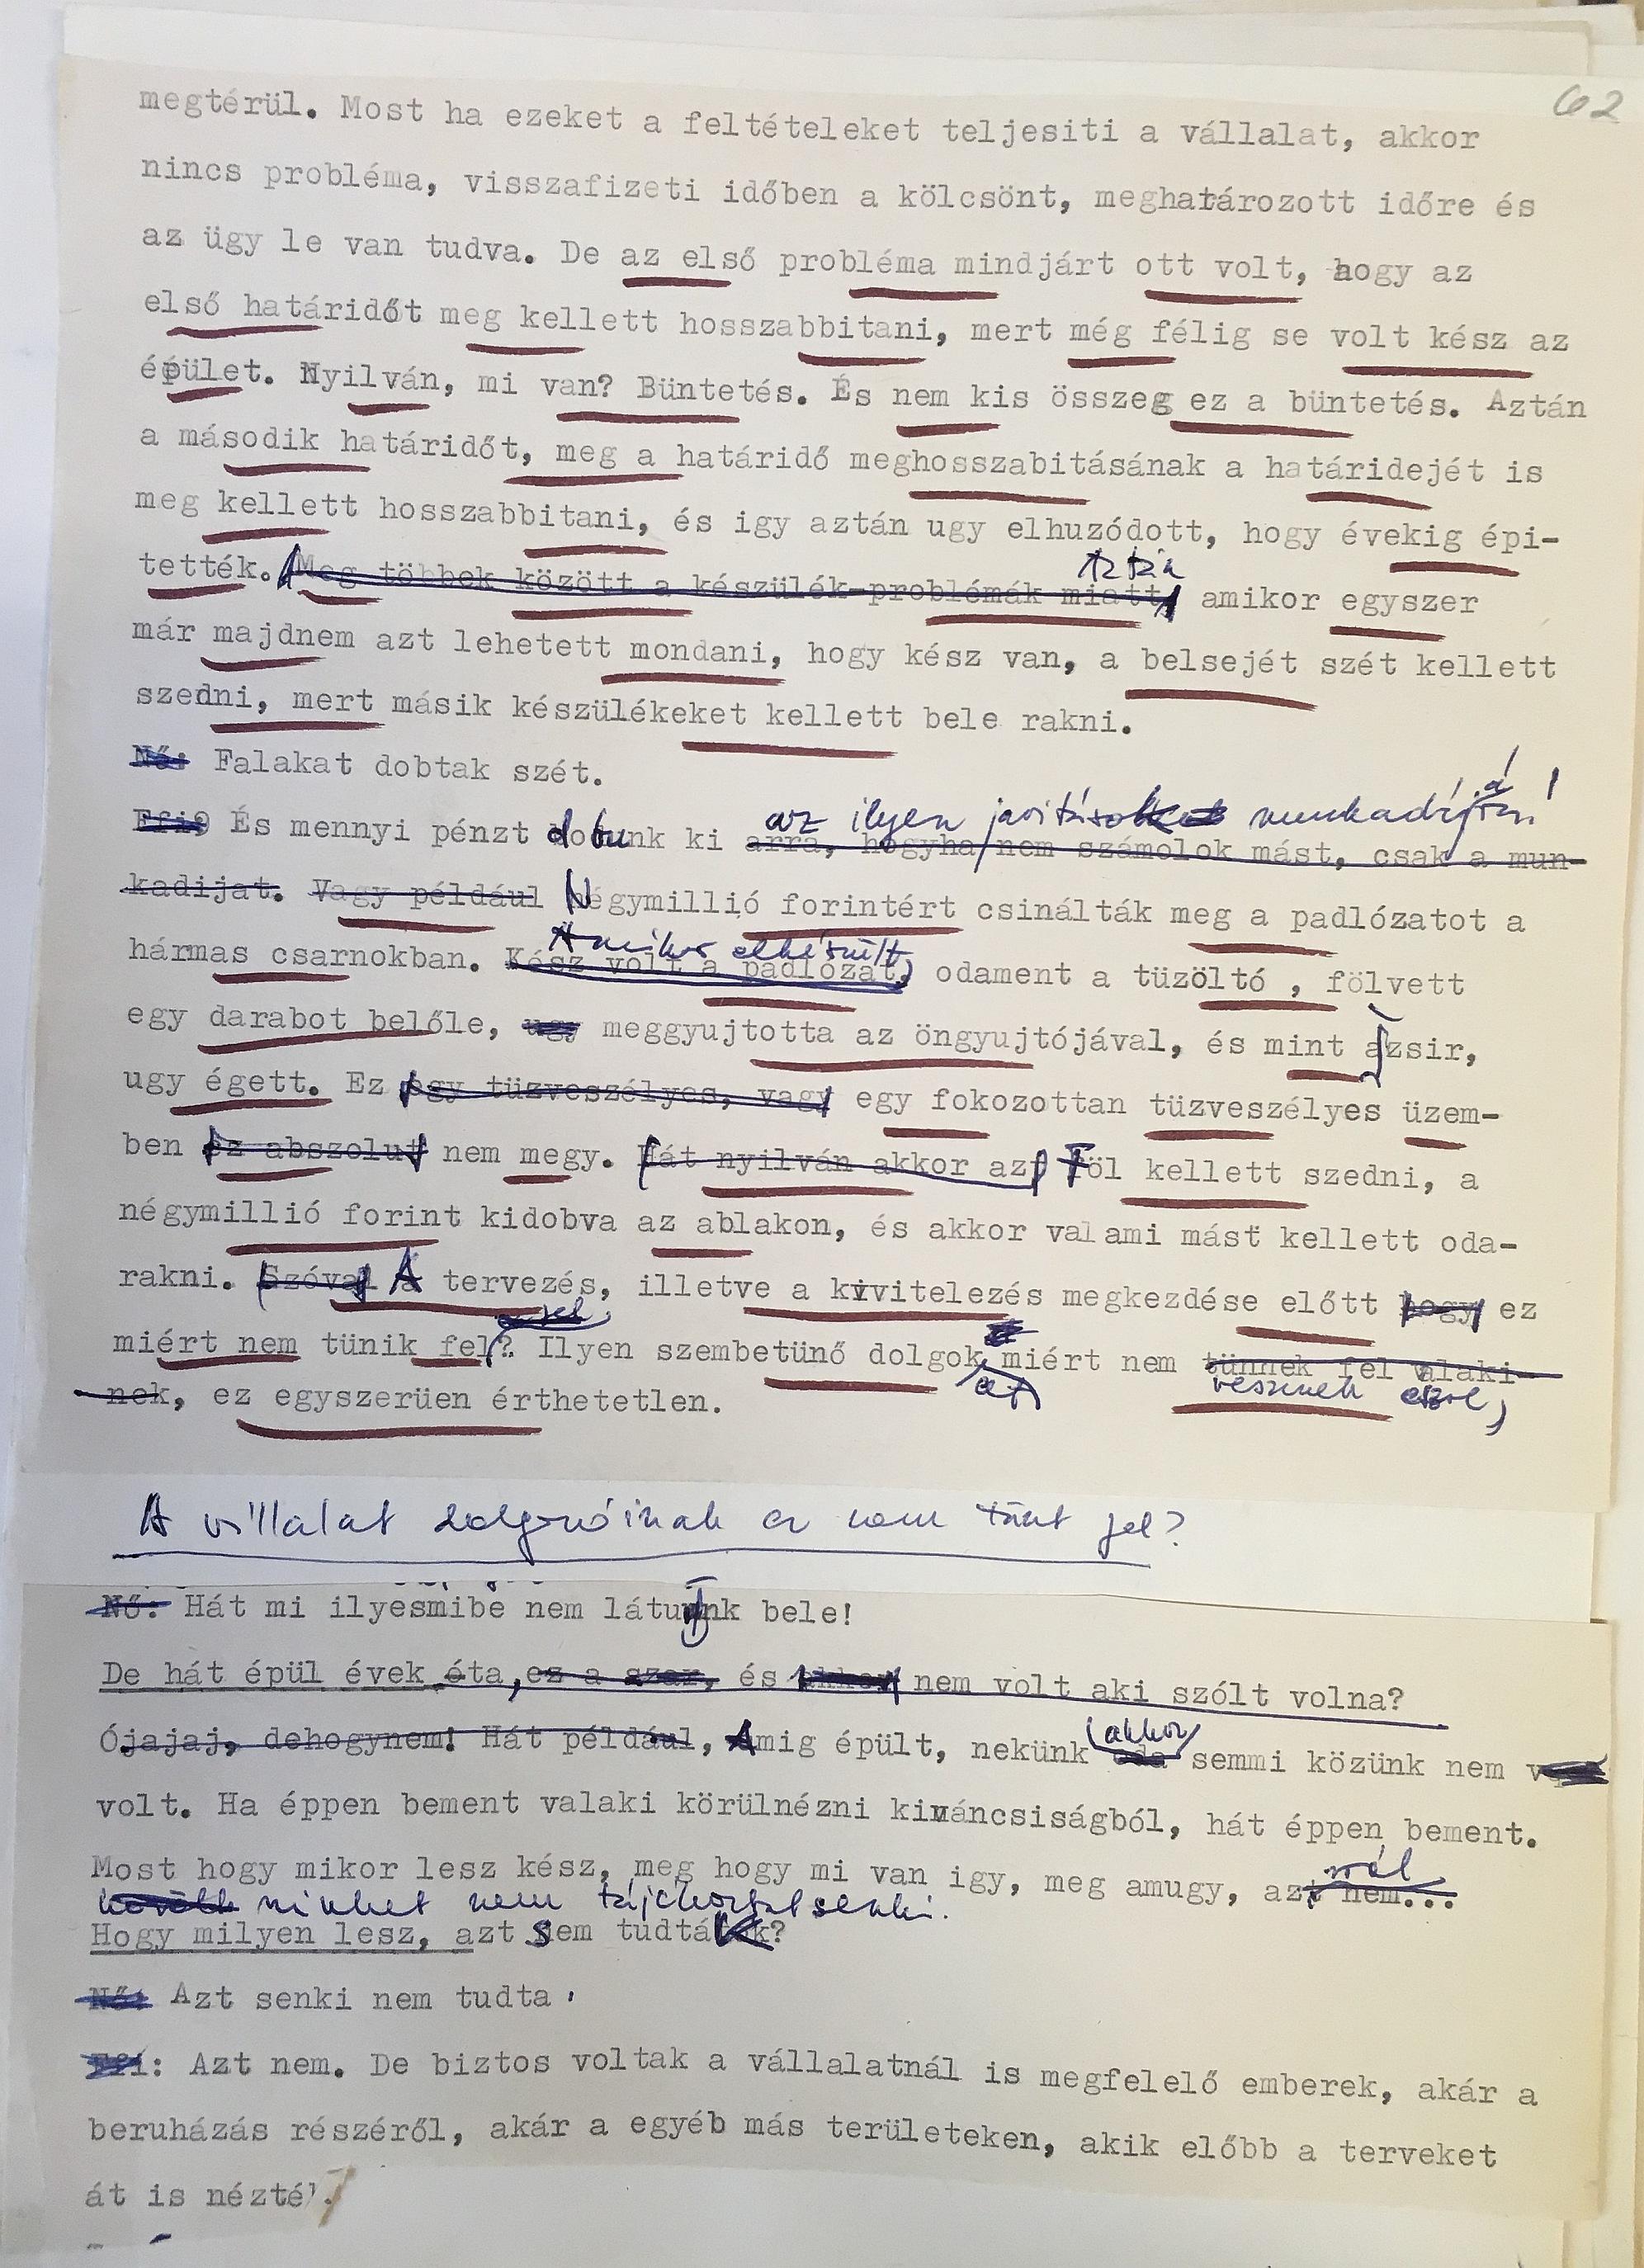 62
megtérül. Most ha ezeket a feltételeket teljesiti a vállalat, akkor
nincs probléma, visszafizeti időben a kölcsönt, meghatározott időre és
az ügy le van tudva. De az első probléma mindjárt ott volt, hogy az
első határidőt meg kellett hosszabbitani, mert még félig se volt kész az
épület. Nyilván, mi van? Büntetés. És nem kis összeg ez a büntetés. Aztán
a második határidőt, meg a határidő meghosszabitásának a határidejét is
meg kellett hosszabbitani, és igy aztán ugy elhuzódott, hogy évekig épi-
Aztán
tették. Meg többek között a készülék-problémák miatt, amikor egyszer
már majdnem azt lehetett mondani, hogy kész van, a belsejét szét kellett
szedni, mert másik készülékeket kellett bele rakni.
Nő: Falakat dobtak szét.
az ilyen javitások munkadíjára!
Efi: És mennyi pénzt dobunk ki arra, hogyha nem számolok mást, csak a mun-
kadijat. Vagy például Négymillió forintért csinálták meg a padlózatot a
Amikor elkészült,
hármas csarnokban. Kész volt a padlózat, odament a tüzoltó , fölvett
egy darabot belőle, ugy meggyujtotta az öngyujtójával, és mint a zsir,
ugy égett. Ez egy tüzveszélyes, vagy egy fokozottan tüzveszélyes üzem-
ben ez abszolut nem megy. Hát nyilván akkor azt Föl kellett szedni, a
négymillió forint kidobva az ablakon, és akkor valami mást kellett oda-
rakni. Szóval A tervezés, illetve a kivitelezés megkezdése előtt hogy ez
miért nem tünik fel? Ilyen szembetünő dolgok miért nem tünnek fel valaki-
et vesznek észre,
nek, ez egyszerüen érthetetlen.
A vállalat dolgozóinak ez nem tünt fel?
Nő: Hát mi ilyesmibe nem látunk bele!
De hát épül évek óta, ez a szar, és akkor nem volt aki szólt volna?
akkor
Ójajaj, dehogynem! Hát például, Amig épült, nekünk oda semmi közünk nem
volt. Ha éppen bement valaki körülnézni kiváncsiságból, hát éppen bement.
ról
Most hogy mikor lesz kész, meg hogy mi van igy, meg amugy, azt nem...
minket nem tájékoztat senki.
Hogy milyen lesz, azt Sem tudták?
Nő: Azt senki nem tudta.
Efi: Azt nem. De biztos voltak a vállalatnál is megfelelő emberek, akár a
beruházás részéről, akár a egyéb más területeken, akik előbb a terveket
át is nézték.